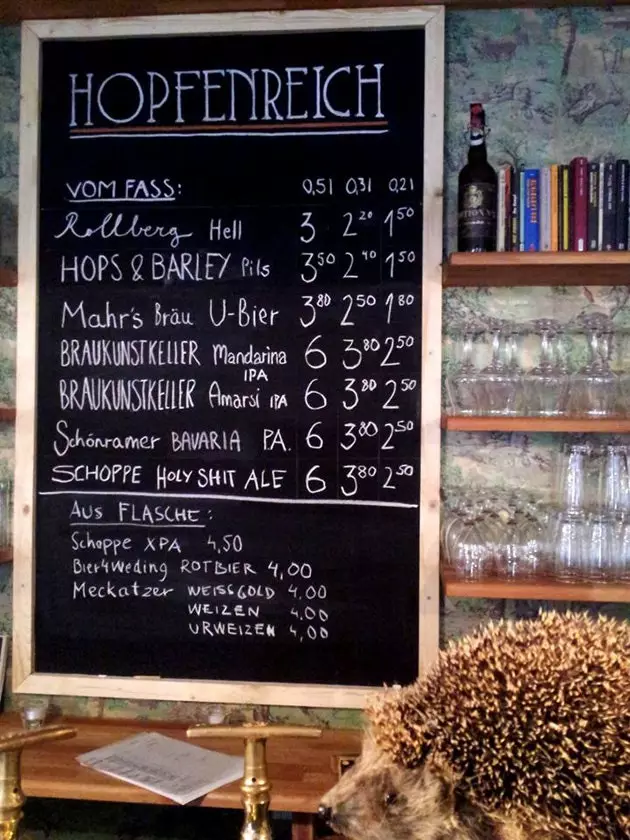 HOPFENREICH
VOM FASS: 0,5l 0,3l 0,2l
Rollberg Hell 3 2²⁰ 1⁵⁰
HOPS & BARLEY Pils 3⁵⁰ 2⁴⁰ 1⁵⁰
Mahr's Bräu U-Bier 3⁸⁰ 2⁵⁰ 1⁸⁰
BRAUKUNSTKELLER Mandarina IPA 6 3⁸⁰ 2⁵⁰
BRAUKUNSTKELLER Amarsi IPA 6 3⁸⁰ 2⁵⁰
Schönramer BAVARIA PA. 6 3⁸⁰ 2⁵⁰
SCHOPPE HOLY SHIT ALE 6 3⁸⁰ 2⁵⁰
AUS FLASCHE:
Schoppe XPA 4,50
Bier4Weding ROTBIER 4,00
Meckatzer WEISSGOLD 4,00
WEIZEN 4,00
URWEIZEN 4,00